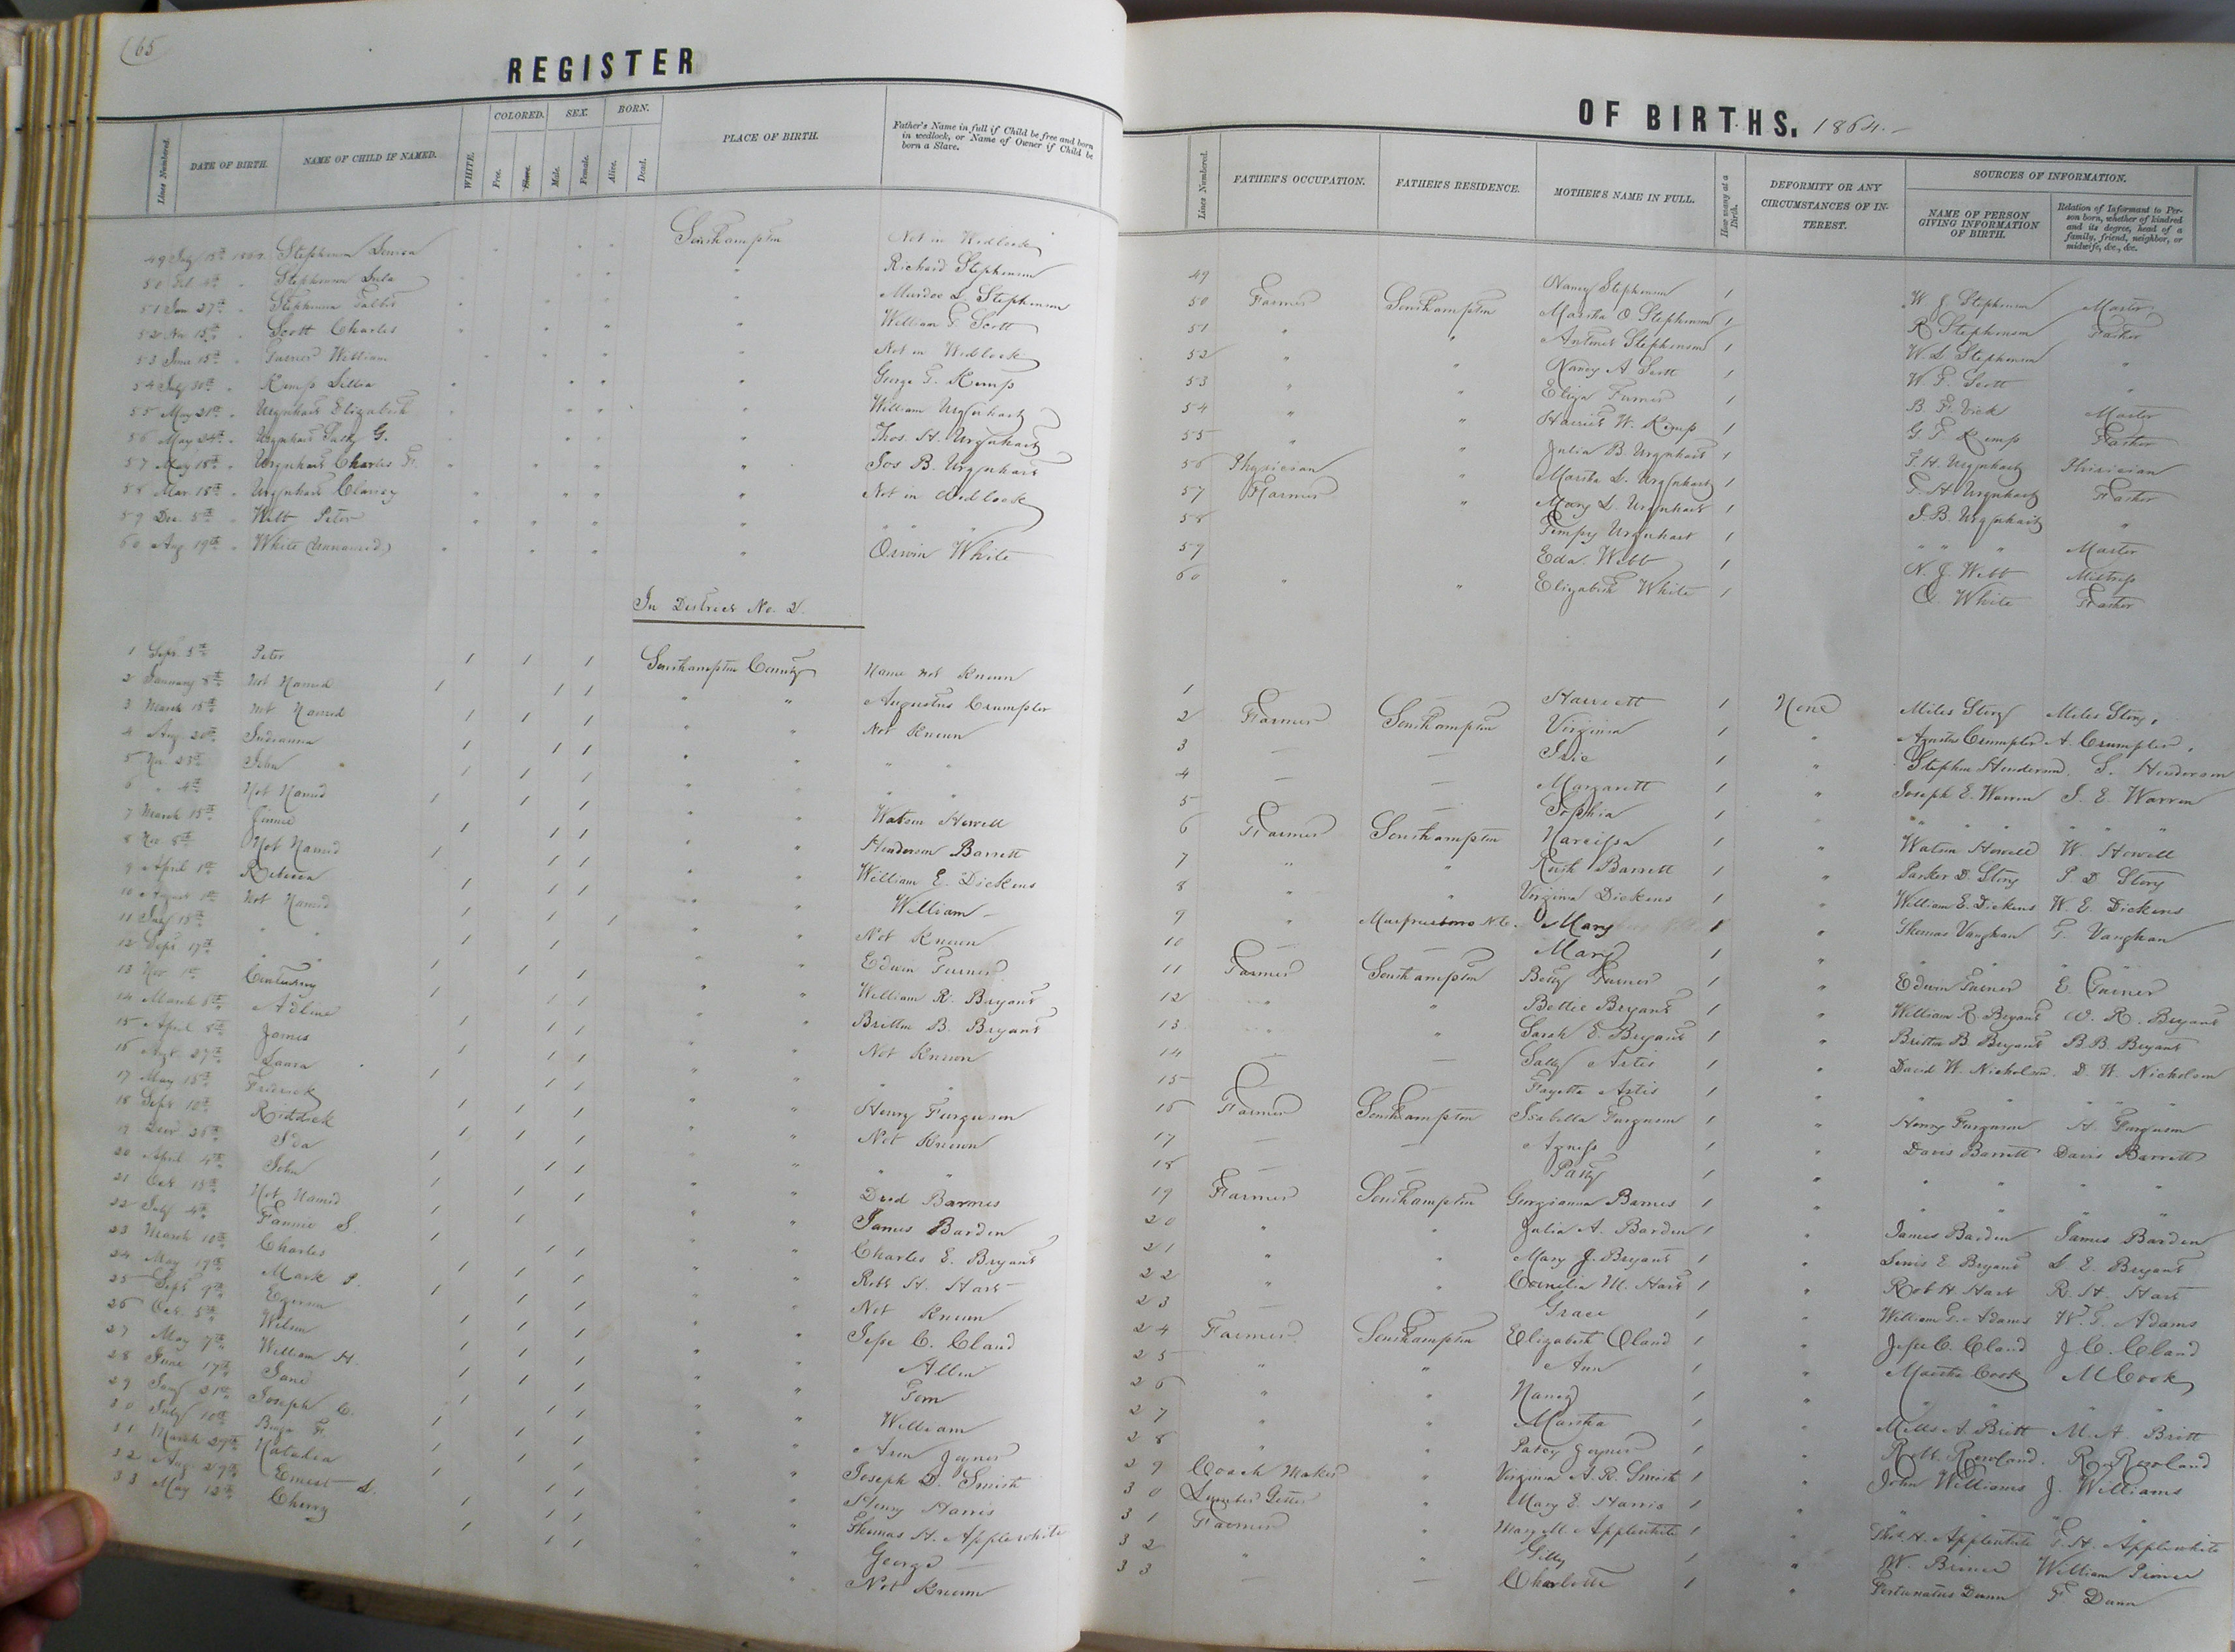 65
REGISTER
OF BIRTHS. 1864.
Lines Numbered. DATE OF BIRTH. NAME OF CHILD IF NAMED. WHITE. COLORED. Free. Slave. SEX. Male. Female. BORN. Alive. Dead. PLACE OF BIRTH. Father's Name in full if Child be free and born in wedlock, or Name of Owner if Child be born a Slave.
Lines Numbered. FATHER'S OCCUPATION. FATHER'S RESIDENCE. MOTHER'S NAME IN FULL. How many at a Birth. DEFORMITY OR ANY CIRCUMSTANCES OF INTEREST. SOURCES OF INFORMATION. NAME OF PERSON GIVING INFORMATION OF BIRTH. Relation of Informant to Person born, whether of kindred and its degree, head of a family, friend, neighbor, or midwife, &c., &c.
49 July 15th Stephenson Southampton Not in Wedlock
50 Feb 4th " Stephenson " Richard Stephenson
51 Jan 27th " Stephenson " L. Stephenson
52 Nov 15th " Scott Charles " William Scott
53 June 15th " Turner William " Not in Wedlock
54 July 30th " Kemp " George Kemp
55 May 21st " Urquhart Elizabeth " William Urquhart
56 May 24th " Urquhart G. " Thos. H. Urquhart
57 May 15th " Urquhart Charles F. " Jos B. Urquhart
58 Mar 15th " Urquhart " Not in Wedlock
59 Dec. 5th " Webb Peter " " " "
60 Aug 19th " White (Unnamed) " White
In District No. 2.
1 Sept. 5th Peter 1 1 1 Southampton County Name not Known
2 January 8th Not Named 1 1 1 " " Augustus Crumpler
3 March 15th Not Named 1 1 1 " " Not Known
4 Aug. 20th Indianna 1 1 1 " " " "
5 Nov 23rd John 1 1 1 " " " "
6 " 4th Not Named 1 1 1 " " Watson Howell
7 March 15th 1 1 1 " " Henderson Barrett
8 Nov 6th Not Named 1 1 1 " " William E. Dickens
9 April 1st Rebecca 1 1 1 " " William
10 August 1st Not Named 1 1 1 " " Not Known
11 July 15th " " 1 1 1 " " Edwin Turner
12 Sept 17th " " 1 1 1 " " William R. Bryant
13 Nov 1st 1 1 1 " " Britton B. Bryant
14 March 5th Adline 1 1 1 " " Not Known
15 April 8th James 1 1 1 " " " "
16 27th Laura 1 1 1 " " Henry Ferguson
17 May 15th Fredrick 1 1 1 " " Not Known
18 Sept 10th Riddick 1 1 1 " " " "
19 25th Ida 1 1 1 " " Barnes
20 April 4th John 1 1 1 " " James Barden
21 Oct. 15th Not Named 1 1 " " Charles E. Bryant
22 July 4th Fannie S. 1 1 1 " " Robt H. Hart
23 March 10th Charles 1 1 1 " " Not Known
24 May 19th Mark 1 1 1 " " Jesse C. Cland
25 Sept 9th 1 1 1 " " Allen
26 Oct. 5th Wilson 1 1 1 " " Tom
27 May 7th William H. 1 1 1 " " William
28 June 17th Jane 1 1 1 " " Joyner
29 21st Joseph C. 1 1 1 " " Joseph D. Smith
30 July 10th 1 1 1 " " Henry Harris
31 March 29th 1 1 1 " " Thomas H. Applewhite
32 Aug 29th Ernest 1 1 1 " " George
33 May 12th Cherry 1 1 1 " " Not Known
49 Nancy Stephenson 1 W. J. Stephenson Master
50 Farmer Southampton Martha O. Stephenson 1 R. Stephenson Father
51 " " Stephenson 1 Stephenson "
52 " " Nancy A. Scott 1 W. F. Scott "
53 " " Eliza Turner 1 B. F. Vick Master
54 " " Harriet W. Kemp 1 G. T. Kemp Father
55 " " Julia B. Urquhart 1 T. H. Urquhart Phisician
56 Physician " Martha L. Urquhart 1 T. H. Urquhart Father
57 Farmer " Mary L. Urquhart 1 J. B. Urquhart "
58 Urquhart 1 " " " Master
59 Eda Webb 1 N. J. Webb Mistress
60 " " Elizabeth White 1 O. White Father
1 — Harriett 1 None Miles Story Miles Story
2 Farmer Southampton Virginia 1 " Crumpler A. Crumpler
3 — — 1 " Stephen Henderson S. Henderson
4 — — Margarett 1 " Joseph E. Warren J. E. Warren
5 Sophia 1 " " " "
6 Farmer Southampton Narcissa 1 " Watson Howell W. Howell
7 " " Ruth Barrett 1 " Parker D. Story P. D. Story
8 " " Virginia Dickens 1 " William E. Dickens W. E. Dickens
9 " Murfreesboro N.C. Mary 1 " Thomas Vaughan T. Vaughan
10 — Mary 1 " " "
11 Farmer Southampton Betsy Turner 1 " Edwin Turner E. Turner
12 " " Bettie Bryant 1 " William R. Bryant W. R. Bryant
13 " " Sarah E. Bryant 1 " Britton B. Bryant B. B. Bryant
14 — — Sally Artis 1 " David W. Nicholson D. W. Nicholson
15 — Fayetta Artis 1 " " "
16 Farmer Southampton Isabella Ferguson 1 " Henry Ferguson H. Ferguson
17 — — Agness 1 " Davis Barrett Davis Barrett
18 — Patsy 1 " " "
19 Farmer Southampton Georgianna Barnes 1 " " "
20 " " Julia A. Barden 1 " James Barden James Barden
21 " " Mary J. Bryant 1 " Lewis E. Bryant L. E. Bryant
22 " " Cornelia M. Hart 1 " Rob H Hart R. H. Hart
23 — Grace 1 " William T. Adams W. T. Adams
24 Farmer Southampton Elizabeth Cland 1 " Jesse C. Cland J. C. Cland
25 " " Ann 1 " Martha Cook M Cook
26 " " Nancy 1 " " "
27 " " Martha 1 " Mills A. Britt M. A. Britt
28 " " Patsy Joyner 1 " Rowland Rowland
29 Coach Maker " Virginia A. R. Smith 1 " John Williams J. Williams
30 Lumber Getter " Mary E. Harris 1 " " "
31 Farmer " Mary M. Applewhite 1 " Thos. H. Applewhite T. H. Applewhite
32 " " Gilly 1 " W. William
33 — — Charlotte 1 " Fortunatus Dunn F Dunn